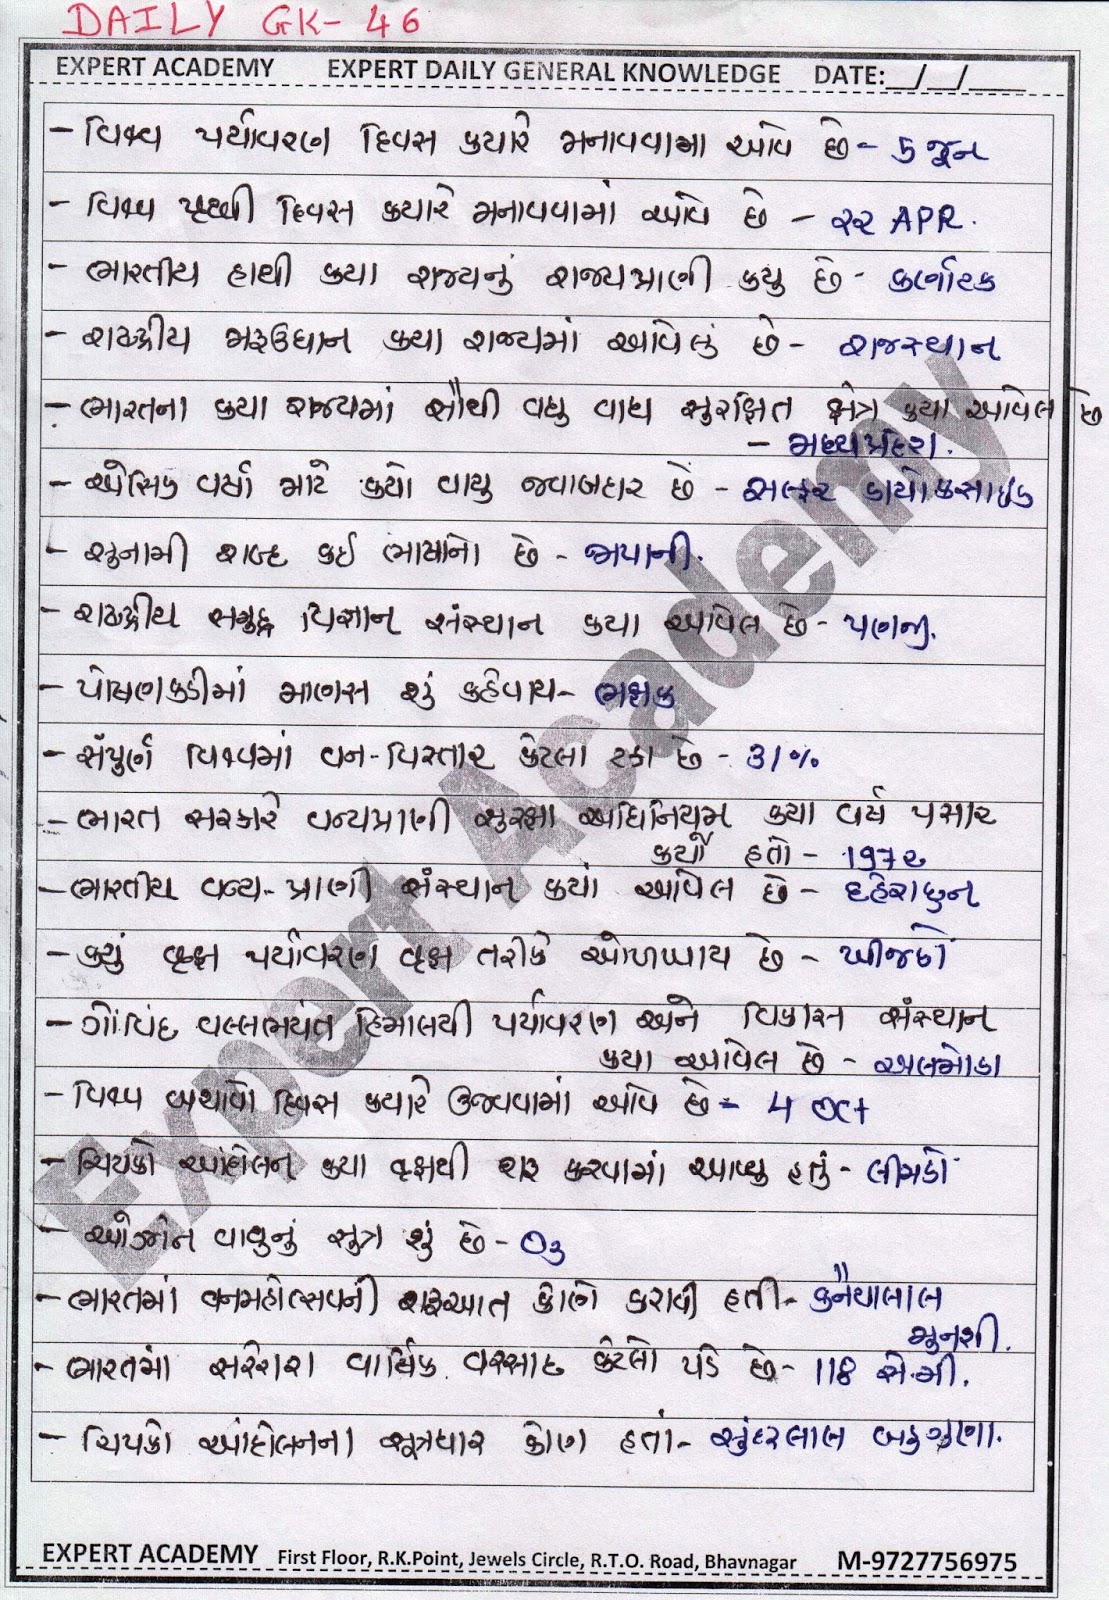 DAILY GK- 46
EXPERT ACADEMY EXPERT DAILY GENERAL KNOWLEDGE DATE:__/__/____
- વિશ્વ પર્યાવરણ દિવસ ક્યારે મનાવવામા આવે છે - 5 જૂન
- વિશ્વ પૃથ્વી દિવસ ક્યારે મનાવવામાં આવે છે - ૨૨ APR.
- ભારતીય હાથી ક્યા રાજ્યનું રાજ્યપ્રાણી ક્યુ છે - કર્ણાટક
- રાષ્ટ્રીય મરૂઉધાન ક્યા રાજ્યમાં આવેલું છે - રાજસ્થાન
- ભારતના ક્યા રાજ્યમાં સૌથી વધુ વાઘ સુરક્ષિત ક્ષેત્ર ક્યા આવેલ છે
- મધ્યપ્રદેશ.
- એસિક વર્ષા માટે ક્યો વાયુ જવાબદાર છે - સલ્ફર ડાયોક્સાઇડ
- સુનામી શબ્દ કઇ ભાષાનો છે - જાપાની.
- રાષ્ટ્રીય સમુદ્ર વિજ્ઞાન સંસ્થાન ક્યા આવેલ છે - પણજી.
- પોષણકડીમાં માણસ શું કહેવાય - ભક્ષક
- સંપુર્ણ વિશ્વમાં વન-વિસ્તાર કેટલા ટકા છે - 31%
- ભારત સરકારે વન્યપ્રાણી સુરક્ષા અધિનિયમ ક્યા વર્ષ પસાર
કર્યો હતો - 1972
- ભારતીય વન્ય-પ્રાણી સંસ્થાન ક્યાં આવેલ છે - દહેરાદુન
- ક્યું વૃક્ષ પર્યાવરણ વૃક્ષ તરીકે ઓળખાય છે - ખીજડો
- ગોવિંદ વલ્લભપંત હિમાલયી પર્યાવરણ અને વિકાસ સંસ્થાન
ક્યા આવેલ છે - અલમોડા
- વિશ્વ બચાવો દિવસ ક્યારે ઉજવવામાં આવે છે - 4 Oct
- ચિપકો આંદોલન ક્યા વૃક્ષથી શરૂ કરવામાં આવ્યુ હતું - લીમડો
- ઓઝોન વાયુનું સુત્ર શું છે - O3
- ભારતમાં વનમહોત્સવની શરૂઆત કોણે કરાવી હતી - કનૈયાલાલ
મૂનશી.
- ભારતમાં સરેરાશ વાર્ષિક વરસાદ કેટલો પડે છે - 118 સે.મી.
- ચિપકો આંદોલનના સૂત્રધાર કોણ હતાં - સુંદરલાલ બહુગુણા.
Expert Academy
EXPERT ACADEMY First Floor, R.K.Point, Jewels Circle, R.T.O. Road, Bhavnagar M-9727756975